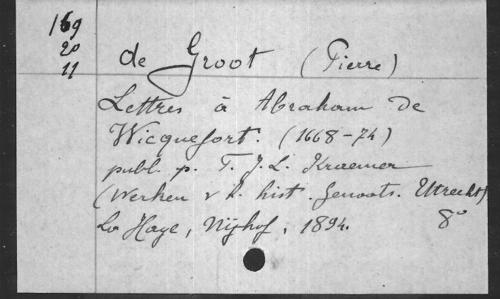 169
20
11
de Groot (Pierre)
Lettres à Abraham de
Wicquefort. (1668-74)
publ. p. F. J. L. Kraemer
(Werken v. h. hist. Genoots. Utrecht)
La Haye, Nijhof, 1894. 8°